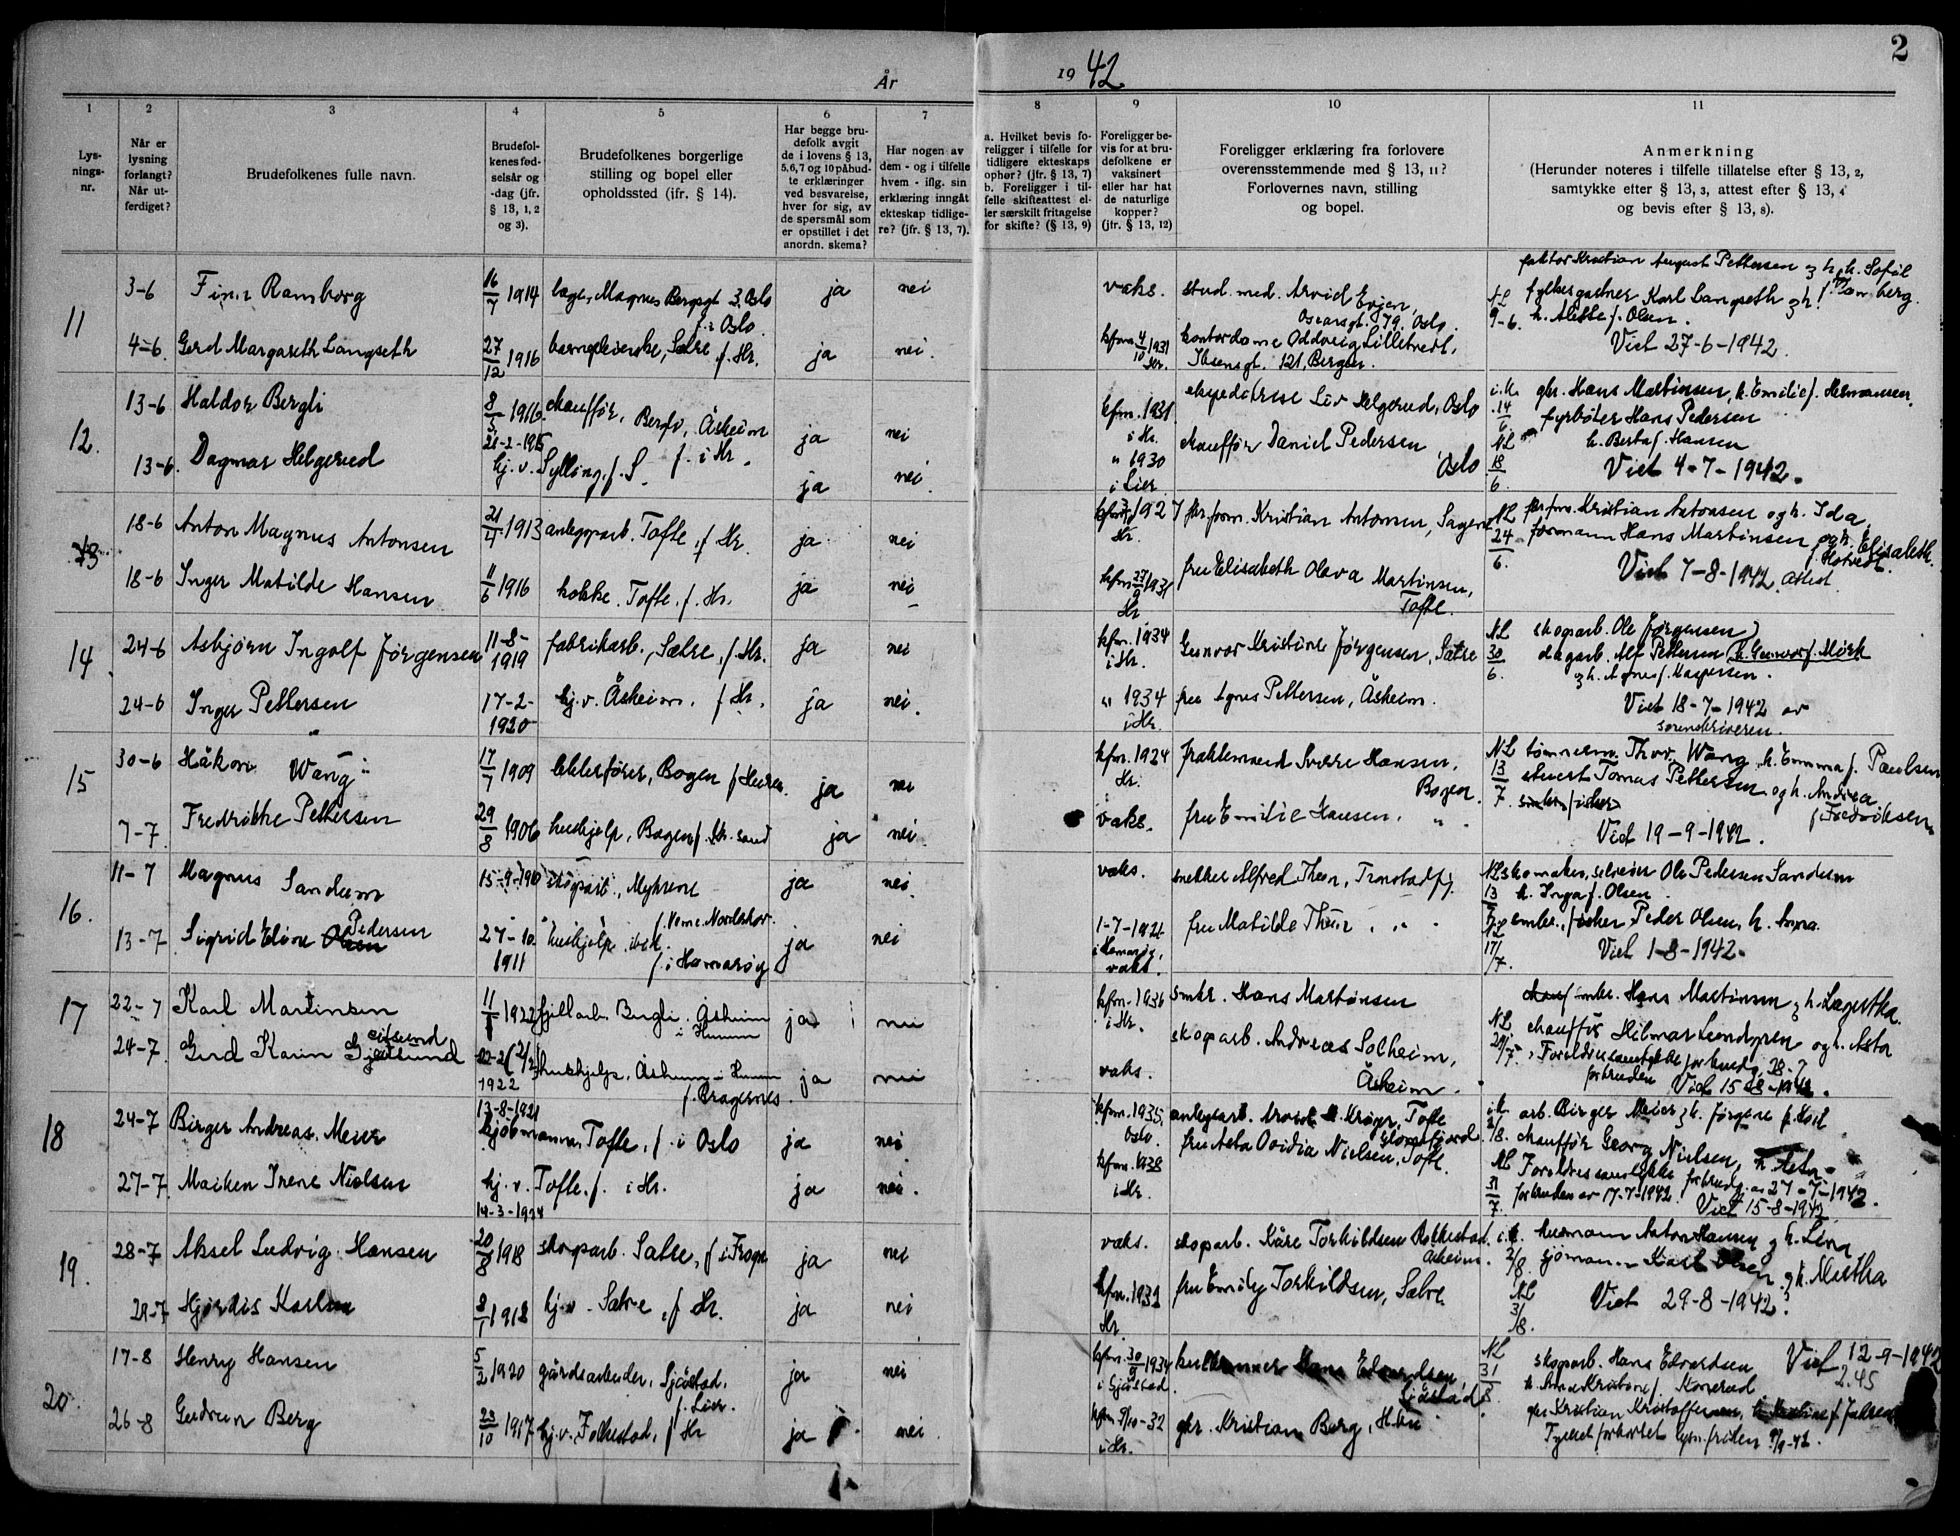 År 19 42
2
1
Lys-
nings-
nr.
2
Når er
lysning
forlangt?
Når ut-
ferdiget?
3
Brudefolkenes fulle navn.
4
Brudefol-
kenes fød-
selsår og
-dag (jfr.
§ 13, 1, 2
og 3).
5
Brudefolkenes borgerlige
stilling og bopel eller
opholdssted (jfr. § 14).
6
Har begge bru-
defolk avgit
de i lovens § 13,
5,6,7 og 10 påbud-
te erklæringer
ved besvarelse,
hver for sig, av
de spørsmål som
er opstillet i det
anordn. skema?
7
Har nogen av
dem - og i tilfelle
hvem - iflg. sin
erklæring inngått
ekteskap tidlige-
re? (jfr. § 13, 7).
8
a. Hvilket bevis fo-
religger i tilfelle for
tidligere ekteskaps
ophør? (jfr. § 13, 7)
b. Foreligger i til-
felle skifteattest el-
ler særskilt fritagelse
for skifte? (§ 13, 9)
9
Foreligger be-
vis for at bru-
defolkene er
vaksinert
eller har hat
de naturlige
kopper?
(jfr. § 13, 12)
10
Foreligger erklæring fra forlovere
overensstemmende med § 13, 11?
Forlovernes navn, stilling
og bopel.
11
Anmerkning
(Herunder noteres i tilfelle tillatelse efter § 13, 2,
samtykke efter § 13, 3, attest efter § 13, 4
og bevis efter § 13, 8).
11
3-6 Finn Ramborg 16/7 1914 Magnus Bergsgt 3. Oslo f. i Oslo ja nei
vaks. stud. med. Arvid Evjen Oscarsgt. 79. Oslo.
faktor Kristian August Pettersen
4-6. Gerd Margareth Langseth 27/12 1916 barnepleierske, Sætre f. Hr. ja nei.
kfm. 4/10 1931 Hr. kontordame Oddveig Lillitvedt, Ibsensgt. 121, Bergen.
NL 9-6. fylkesgartner Karl Langseth h. Alette f. Olsen.
Viet 27-6-1942.
12.
13-6 Haldor Bergli 8/5 1916 chauffør, Bergli, Åsheim f. i Hr. ja nei
kfm. 1931 i Hr. ekspeditrise Liv Helgerud, Oslo
i.h. 14/6 gbr. Hans Martinsen, h. Emilie f. Hermansen.
13-6. Dagmar Helgerud 21-2-1915 hj. v. Sylling, f. S. ja nei.
" 1930 i Lier. chauffør Daniel Pedersen Oslo
NL 18/6. fyrbøter Hans Pedersen h. Berta f. Hansen
Viet 4-7-1942.
13
18-6 Anton Magnus Antonsen 21/4 1913 anleggsarb. Tofte, f. Hr. ja nei
1927 Hr. Kristian Antonsen,
NL 24/6. Kristian Antonsen og h. Ida
18-6 Inger Matilde Hansen 11/6 1916 kokke. Tofte, f. Hr. ja nei
kfm. 27/9 1931 Hr. fru Elisabeth Olava Martinsen, Tofte.
formann Hans Martinsen og h. Elisabeth
Viet 7-8-1942. Oslo
14
24-6 Asbjørn Ingolf Jørgensen 11-8-1919 fabrikarb., Sætre, f. Hr. ja nei
kfm. 1934 i Hr. Gunvor Kristine Jørgensen, Sætre
NL 30/6. skogsarb. Ole Jørgensen h. Gunvor f. Mørk
24-6 Inger Pettersen 17-2-1920 hj. v. Åsheim. f. Hr. ja nei.
" 1934 i Hr. fru Agnes Pettersen, Åsheim.
dagarb. Alf Pettersen h. Agnes f. Kaspersen.
Viet 18-7-1942 av sorenskriveren.
15
30-6 Håkon Wang 17/7 1909 Bogen f. Hurum ja nei
kfm. 1924 Hr. fraktemand Sverre Hansen, Bogen.
NL 13/7 tømmerm. Thor Wang, h. Emma f. Paulsen
7-7. Fredrikke Pettersen 29/8 1906 hushjelp, Bogen f. Kr. sand ja nei.
vaks. fru Emilie Hansen. " "
stuert Tomas Pettersen og h. Andrea f. Fredriksen
Viet 19-9-1942.
16.
11-7 Magnus Sandum skogsarb., Myhrene ja nei.
vaks. snekker Alfred Theen, Tronstad
NL 13 skomaker, Ole Pedersen Sandum h. Inga f. Olsen.
13-7 Sigrid Eline Olsen Pedersen 27-10 1911 hushjelp ibid. f. i Hamarøy ja nei
1-7-1926 i Hamarøy, vaks. fru Matilde Theen " "
NL 17/7. Peder Olsen, h. Anna.
Viet 1-8-1942.
17
22-7 Karl Martinsen 11/1 1922 Bergli. Åsheim i Hurum ja nei
kfm. 1936 i Hr. Hans Martinsen
Hans Martinsen h. Lagertha.
24-7. Gerd Karin 1922 hushjelp, Åsheim i Hurum f. Bragernes. ja nei
vaks. skogsarb. Andreas Solheim, Åsheim.
NL 29/7. chauffør Hilmar og h. Asta
Viet 15-8-1942.
18
24-7 Birger Andreas. Meier 13-8-1921 sjømann Tofte, f. i Oslo ja nei.
kfm. 1935 Oslo. Tofte
i.h. arb. Birger Meier h. Jørgine f. Hoit
27-7. Maiken Irene Nielsen hj. v. Tofte. f. i Hr. 14-3-1924 ja nei.
kfm. 1938 i Hr. fru Asta Ovidia Nielsen, Tofte.
NL 31/7. chauffør Georg Nielsen, h. Asta.
Foreldresamtykke for brudg. av 27-7-1942 for bruden av 17-7-1942.
Viet 15-8-1942
19.
28-7 Aksel Ludvig Hansen 20/8 1918 skogsarb. Sætre, f. i Frogn ja nei
vaks. skogsarb. Kåre Torkildsen Åsheim.
i.h. 2/8. Anton Hansen h. Lina
29-7 Hjørdis Karlsen 8/1 1918 hj. v. Sætre, f. Hr. ja nei
kfm. 1932 Hr. fru Emily Torkildsen, Sætre
NL 31/8. sjømann Karl h. Martha
Viet 29-8-1942.
20.
17-8 Henry Hansen 5/2 1920 gårdsarbeider, Sjåstad, f. Lier. ja nei
kfm. 30/9 1934 i Sjåstad. Hans Edvardsen, Sjåstad
NL 31/8. skogsarb. Hans Edvardsen h. Anna Kristine f. Konerud.
Viet 12-9-1942 2.45
26-8 Gudrun Berg 23/10 1917 hj. v. Folkestad, f. Hr ja nei.
kfm. 9/10-32 i Hr. gbr. Kristian Berg,
gbr Kristian Kristoffersen,
Fylket forkortet lysn. fristen 9/9-42.